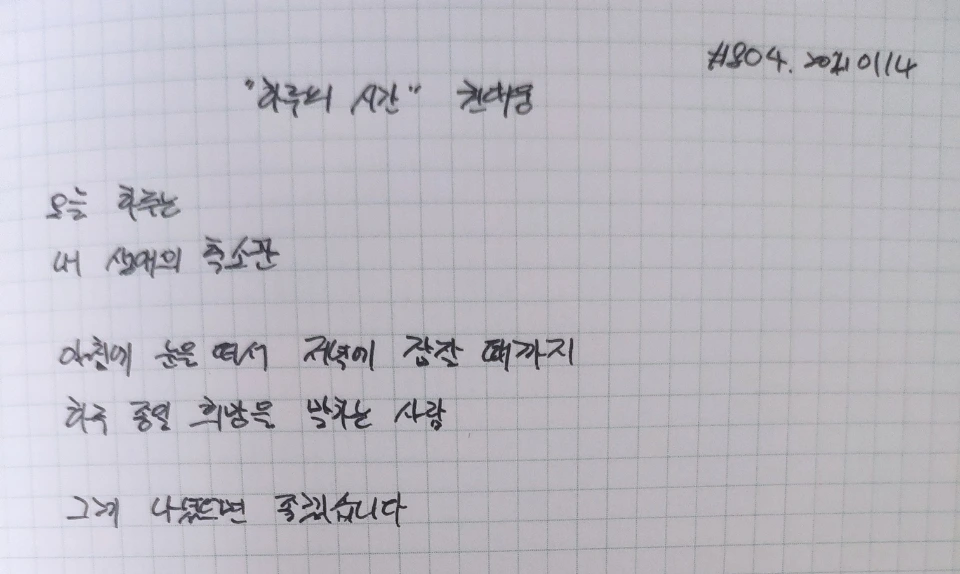 #804. 20210114
"하루의 시간" 천대영
오늘 하루는
내 생애의 축소판
아침에 눈을 떠서 저녁에 잠잘 때까지
하루 종일 희망을 밝히는 사람
그게 나였다면 좋겠습니다